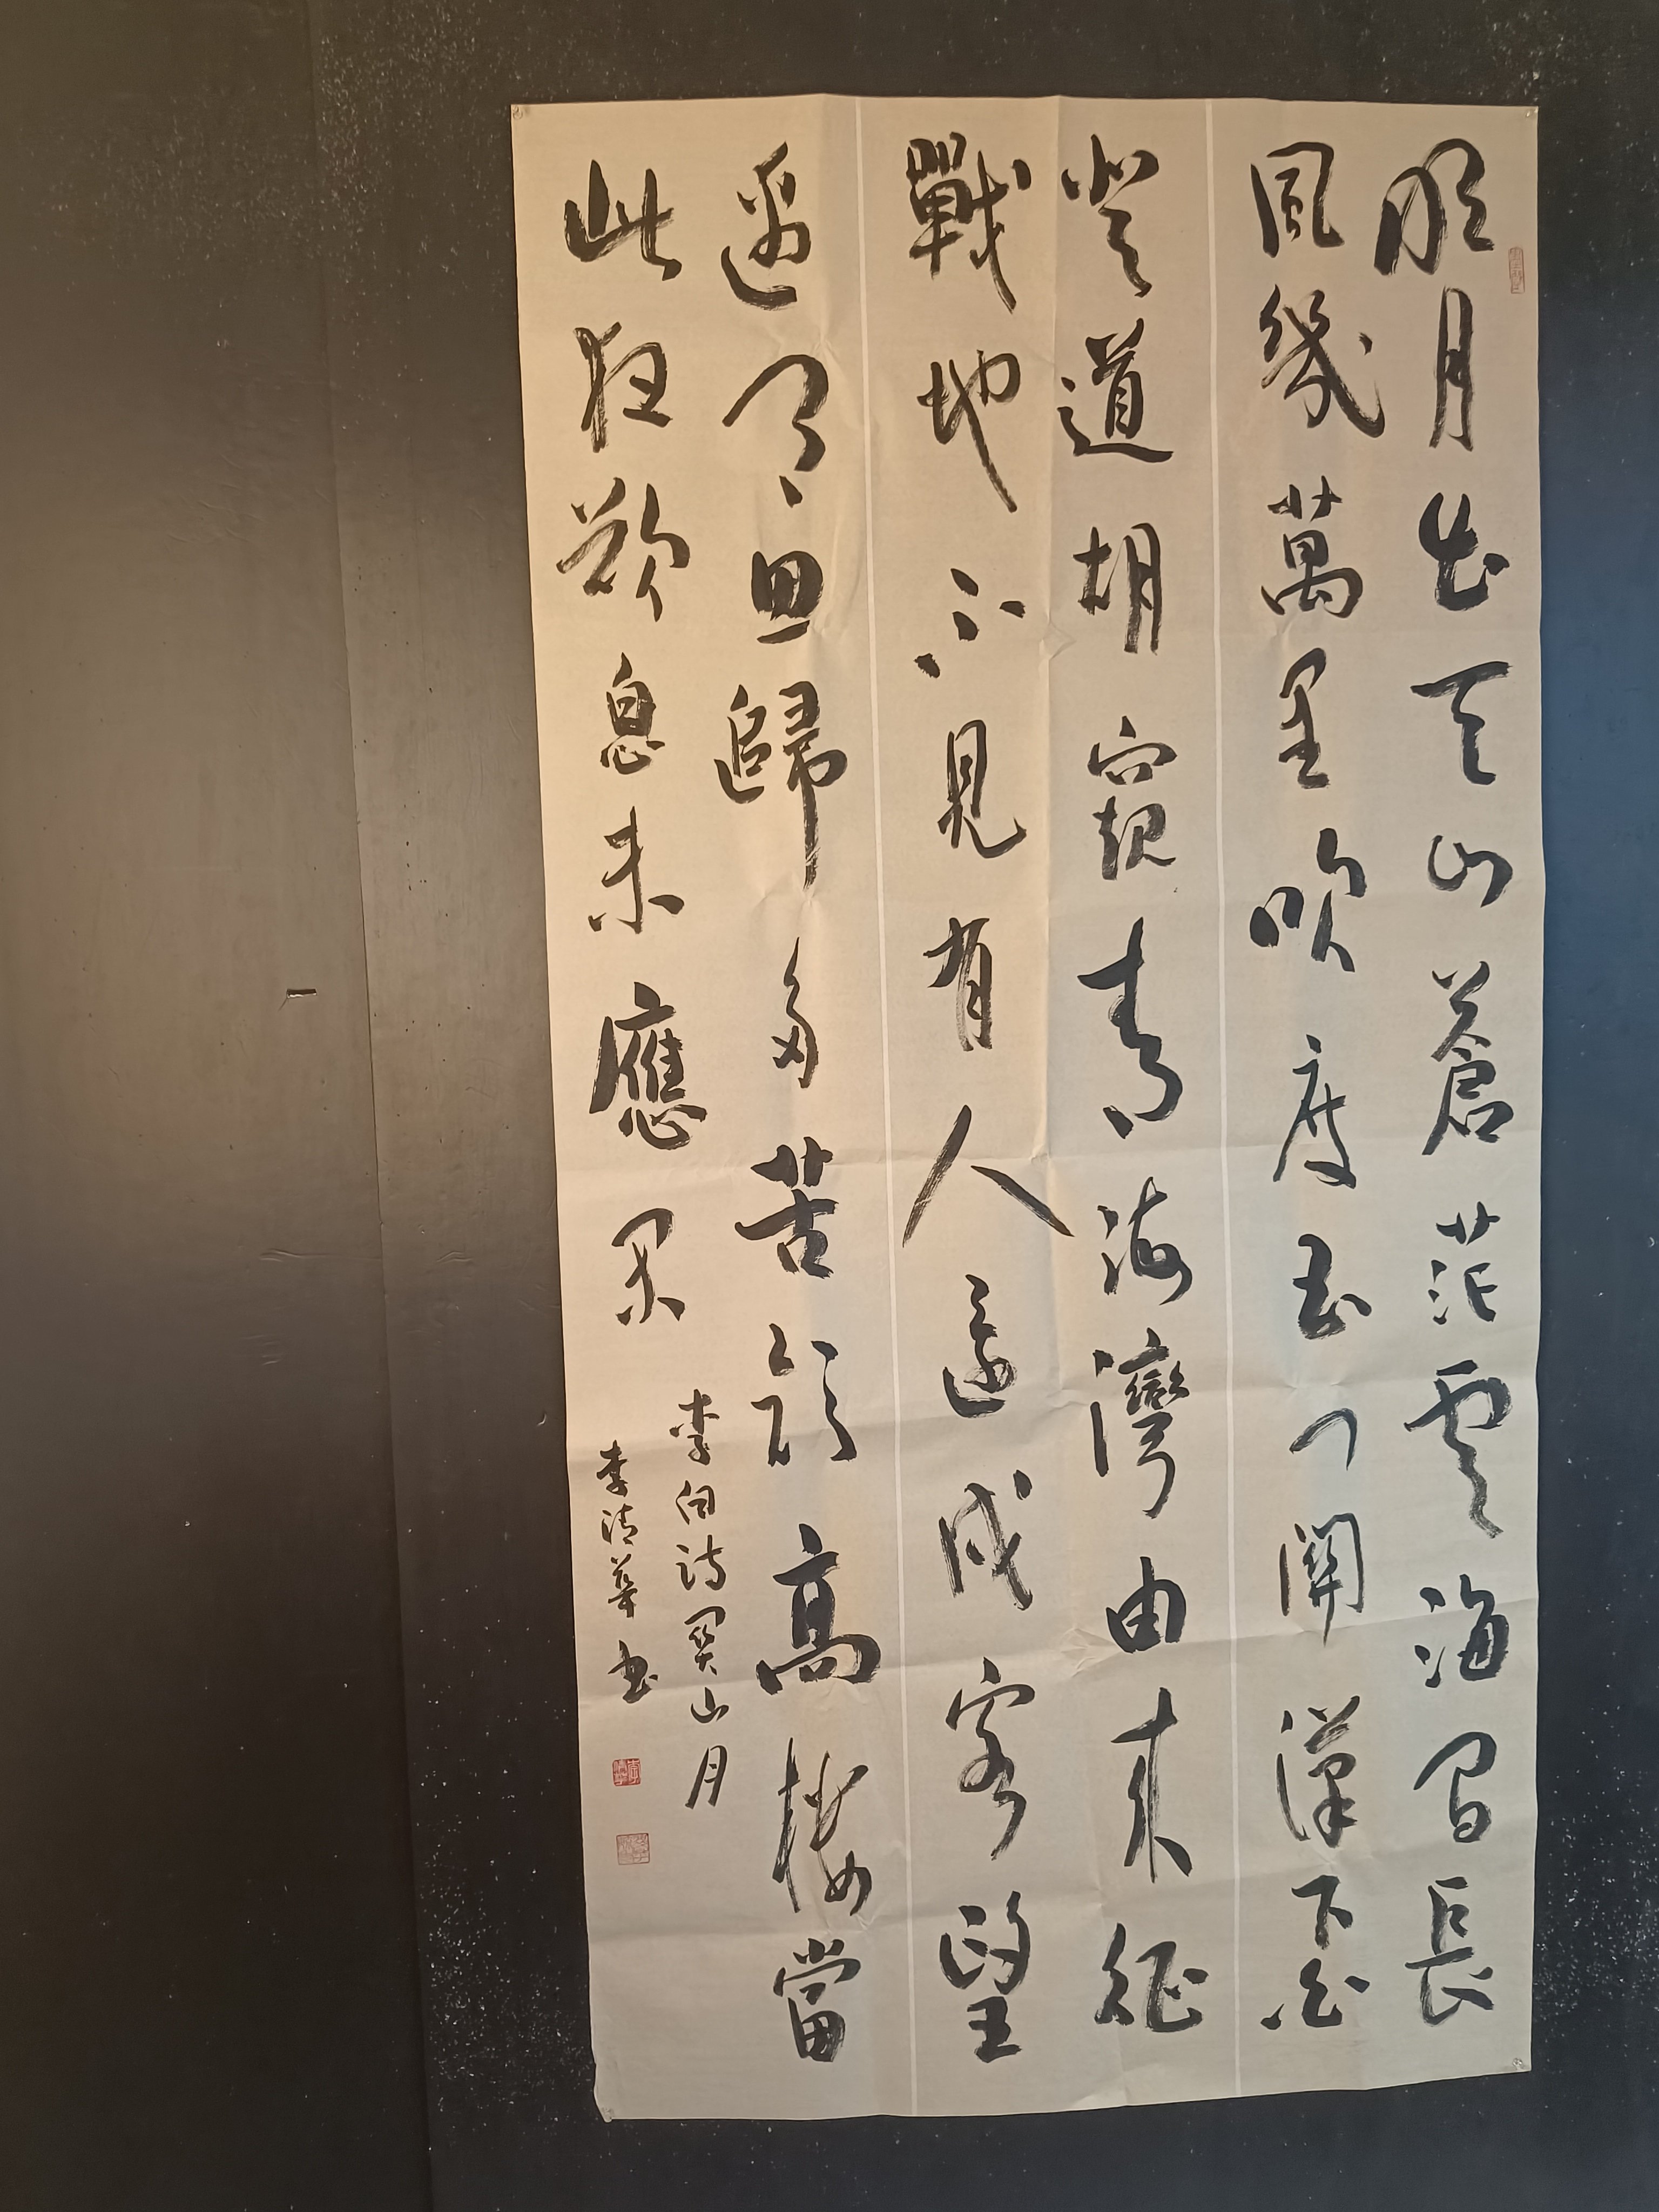 明月出天山蒼茫雲海間長
風幾萬里吹度玉門關漢下白
登道胡窺青海灣由來征
戰地不見有人還戍客望
邊色思歸多苦顏高樓當
此夜歎息未應閑
李白詩關山月
李清華书